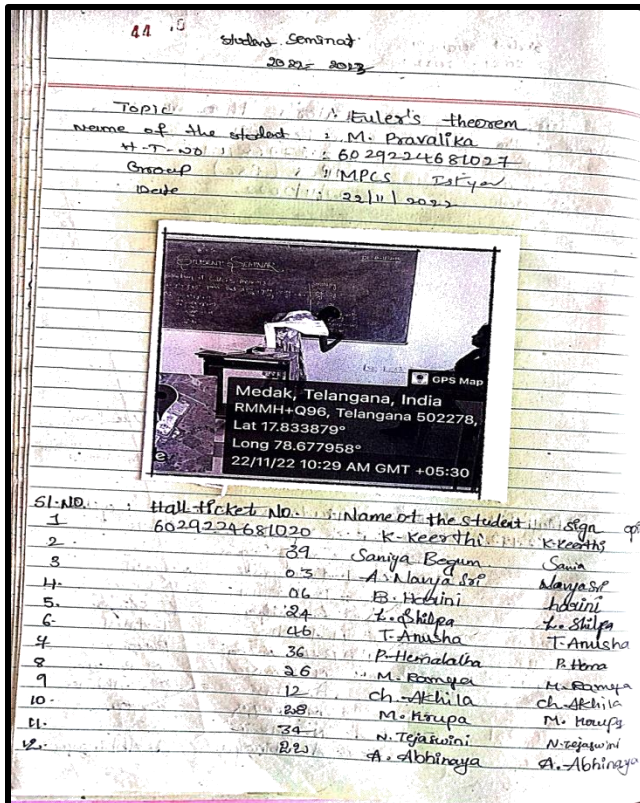 44
student Seminar
2022- 2023
Topic : Euler's theorem
Name of the student : M. Pravalika
H-T-NO : 6029224681027
Group : MPCS Ist year
Date 22/11/2022
STUDENT SEMINAR
GPS Map
Medak, Telangana, India
RMMH+Q96, Telangana 502278,
Lat 17.833879°
Long 78.677958°
22/11/22 10:29 AM GMT +05:30
Sl.NO. : Hall-ticket No. : Name of the student sign
1 6029224681020 K-Keerthi K-Keerthi
2. 39 Saniya Begum Sania
3 03 A. Navya Sri Navya Sri
4. 06 B. Hasini hasini
5. 24 L. Shilpa L. Shilpa
6. 46 T. Anusha T. Anusha
7 36 P. Hemalatha P. Hema
8 26 M. Ramya M. Ramya
9 12 Ch. Akhila Ch. Akhila
10. 28 M. Krupa M. Krupa
11. 34 N. Tejaswini N. Tejaswini
12. A. Abhinaya A. Abhinaya